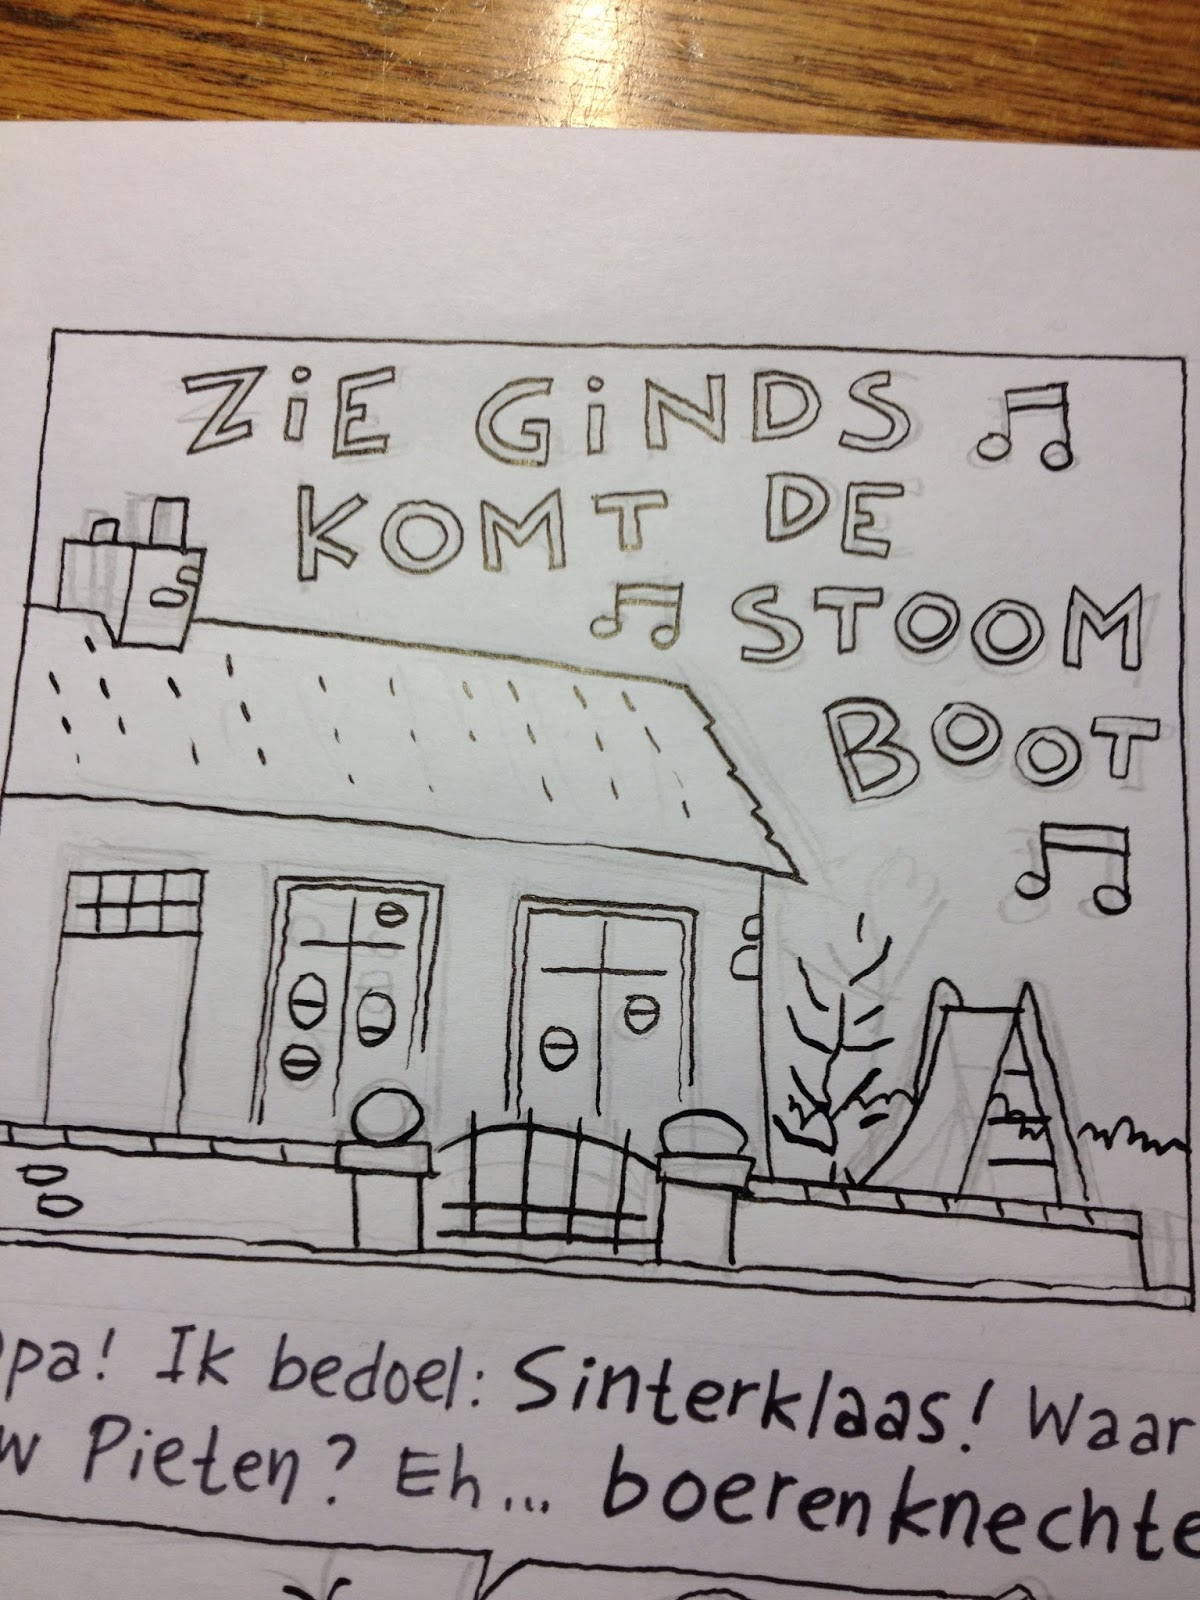 ZiE GiNDS
KOMT DE
STOOM
BOOT
Opa! Ik bedoel: Sinterklaas! Waar
Pieten? Eh... boerenknechte